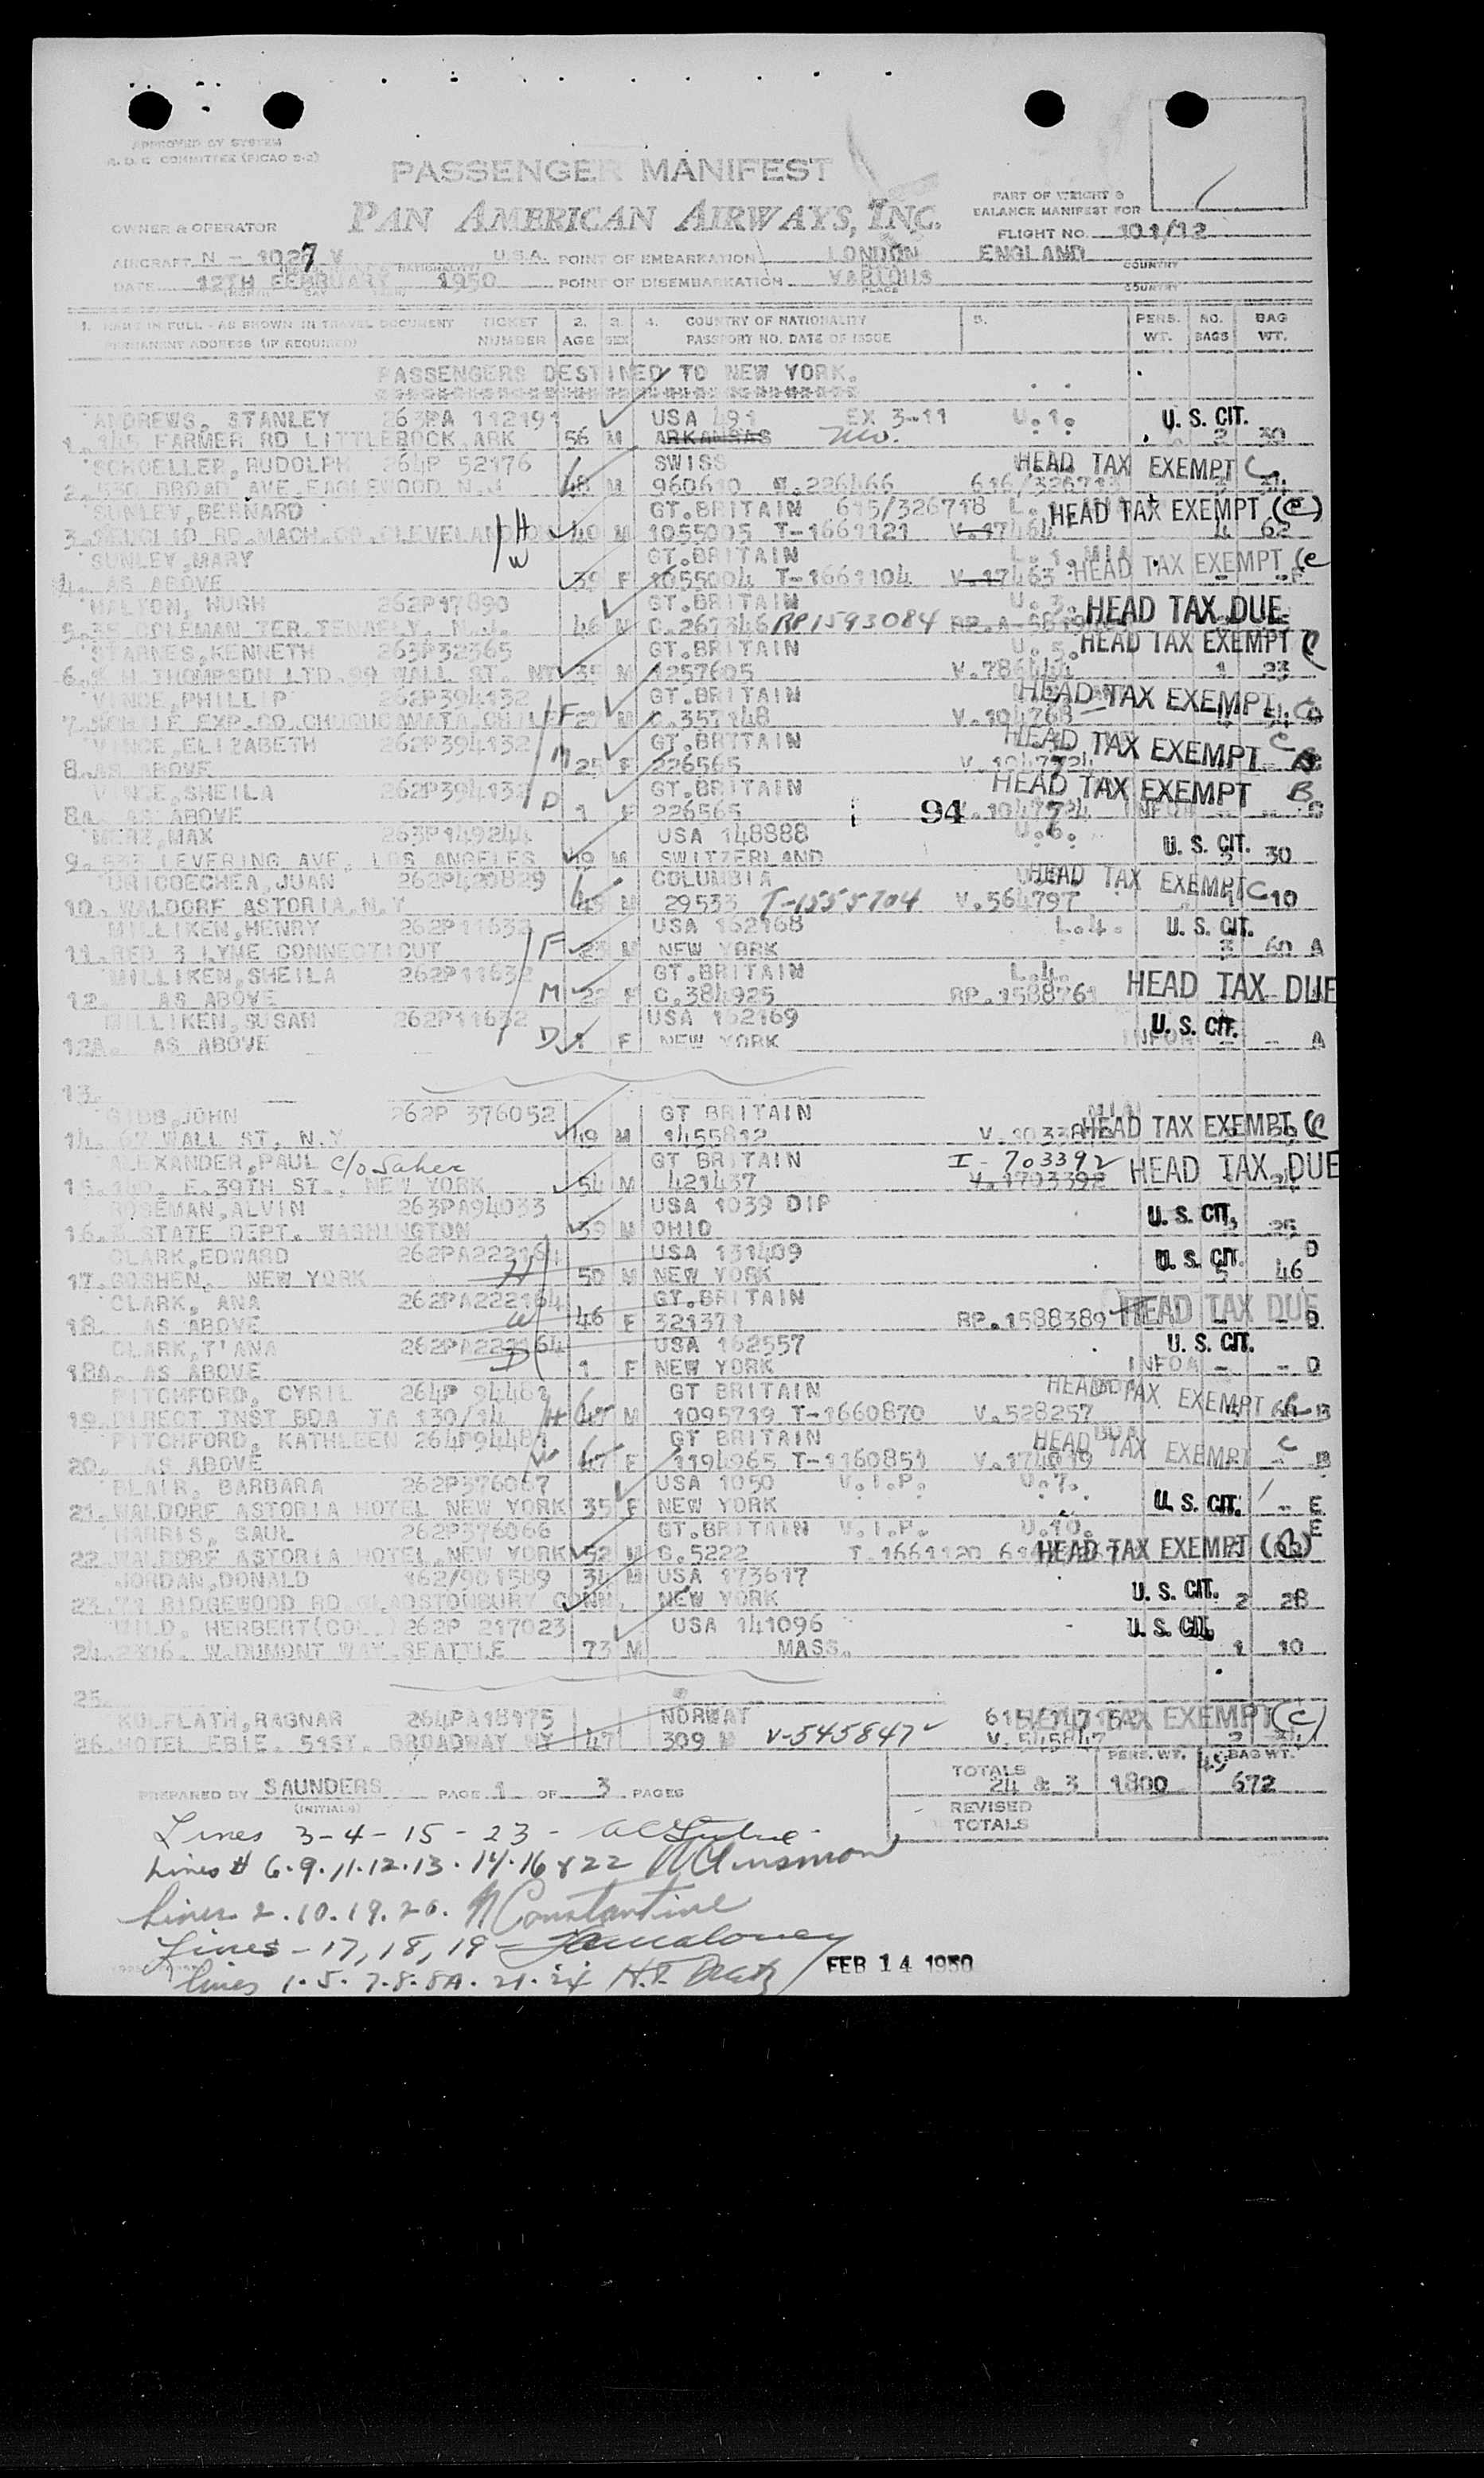 APPROVED BY SYSTEM
A.D.C COMMITTEE (PICAO S-2)
PASSENGER MANIFEST
PAN AMERICAN AIRWAYS, INC.
PART OF WEIGHT &
BALANCE MANIFEST FOR
OWNER & OPERATOR
FLIGHT NO. 101/12
AIRCRAFT N - 1027 V U.S.A. POINT OF EMBARKATION LONDON ENGLAND
COUNTRY
DATE 12TH FEBRUARY 1950 POINT OF DISEMBARKATION VARIOUS
PLACE COUNTRY
1. NAME IN FULL - AS SHOWN IN TRAVEL DOCUMENT TICKET 2. 3. 4. COUNTRY OF NATIONALITY 5. PERS. NO. BAG
PERMANENT ADDRESS (IF REQUIRED) NUMBER AGE SEX PASSPORT NO. DATE OF ISSUE WT. BAGS WT.
PASSENGERS DESTINED TO NEW YORK.
ANDREWS, STANLEY 263PA 112191 USA 491 EX 3-11 U.1. U. S. CIT.
1. 145 FARMER RD LITTLEROCK ARK 56 M ARKANSAS Mo. 2 30
SCHOELLER, RUDOLPH 264P 52176 SWISS HEAD TAX EXEMPT C
2. BROAD AVE. N.J 48 M 960610
SUNLEY, BERNARD GT.BRITAIN 615/326718 HEAD TAX EXEMPT (C)
3. EUCLID RD. MACH. CO. CLEVELAND H 40 M 1055005 T-1661121 V.17464 4 62
SUNLEY, MARY W GT.BRITAIN L.1. MIA HEAD TAX EXEMPT (C
4. AS ABOVE 39 F 1055004 T-1661104 V.17463
HALYON, HUGH 262P17890 GT.BRITAIN U.3. HEAD TAX DUE
5. 35 COLEMAN TER. TENAFLY. N.J. 46 M C.267346 RP1593084
STARNES, KENNETH 263P32365 GT.BRITAIN U.5. HEAD TAX EXEMPT C
6. THOMPSON LTD. 99 WALL ST. NY 35 M 1257605 1 23
VINCE, PHILLIP 262P394132 GT.BRITAIN HEAD TAX EXEMPT C
7. EXP. CO. CHUQUCAMATA CHILE F 27 M C.357148 V.104768
VINCE, ELIZABETH 262P394132 GT.BRITAIN HEAD TAX EXEMPT C
8. AS ABOVE M 25 F 226565
VINCE, SHEILA 262P394132 GT.BRITAIN HEAD TAX EXEMPT B
8A. AS ABOVE D 1 F 226565 94 INFOA
MERZ, MAX 263P149244 USA 148888 U.6. U. S. CIT.
9. LEVERING AVE. LOS ANGELES 49 M SWITZERLAND 30
URICOECHEA, JUAN 262P420829 COLUMBIA HEAD TAX EXEMPT C
10. WALDORF ASTORIA, N.Y M 29533 T-1555704 V.564797 1 10
MILLIKEN, HENRY 262P11632 USA 162168 L.4. U. S. CIT.
11. RED 3 LYME CONNECTICUT F M NEW YORK 3 60 A
MILLIKEN, SHEILA 262P11632 GT.BRITAIN L.4. HEAD TAX DUE
12. AS ABOVE M 22 F C.384925 RP.1588761
MILLIKEN, SUSAN 262P11632 USA 162169 U. S. CIT.
12A. AS ABOVE D 1 F NEW YORK INFOA - A
13.
GIBB, JOHN 262P 376052 GT BRITAIN MIA HEAD TAX EXEMPT C
14. 67 WALL ST, N.Y 49 M 1455812
ALEXANDER, PAUL c/o Saher GT BRITAIN I - 703392 HEAD TAX DUE
15. 140. E.39TH ST., NEW YORK 54 M 421437 V.1703392
ROSEMAN, ALVIN 263PA94033 USA 1039 DIP U. S. CIT.
16. STATE DEPT. WASHINGTON 39 M OHIO
CLARK, EDWARD 262PA222164 USA 131409 U. S. CIT. D
17. GOSHEN. NEW YORK H 50 M NEW YORK 5 46
CLARK, ANA 262PA222164 GT.BRITAIN HEAD TAX DUE
18. AS ABOVE W 46 F 321371 RP.1588389 - D
CLARK, T'ANA 262PA222164 USA 162557 U. S. CIT.
18A. AS ABOVE D 1 F NEW YORK INFOA - - D
PITCHFORD, CYRIL 264P 94481 GT BRITAIN HEAD TAX EXEMPT
19. DIRECT INST BDA TA 130/14 H 47 M 1095719 T-1660870 V.528257 B
PITCHFORD, KATHLEEN 264P94481 GT BRITAIN BDA HEAD TAX EXEMPT C
20. AS ABOVE W 47 F 1194965 T-1160851 V.174019 - B
BLAIR, BARBARA 262P376067 USA 1050 V.I.P. U.7.
21. WALDORF ASTORIA HOTEL NEW YORK 35 F NEW YORK U. S. CIT. - E
HARRIS, SAUL 262P376066 GT.BRITAIN V.I.P. U.10. E
22. WALDORF ASTORIA HOTEL, NEW YORK 52 M C.5222 T.1661120 HEAD TAX EXEMPT
JORDAN, DONALD 162/901589 34 M USA 173617 U. S. CIT.
23. 71 RIDGEWOOD RD. GLADSTONBURY CONN. NEW YORK 2 28
WILD, HERBERT(COL.) 262P 217023 USA 141096 U. S. CIT.
24. 2816. W.DUMONT WAY. SEATTLE 73 M MASS. 1 10
25.
KOLFLATH, RAGNAR 264PA18175 NORWAY HEAD TAX EXEMPT (C)
26. HOTEL EBIE. 51ST. BROADWAY NY 47 309 M V-545847 V.545847 2 34
TOTALS PERS. WT. 45 BAG WT.
24 & 3 1800 672
PREPARED BY SAUNDERS PAGE 1 OF 3 PAGES
(INITIALS)
REVISED
TOTALS
Lines 3-4-15-23-
Lines # 6.9.11.12.13.14.16 & 22
Lines 2.10.19.20. Constantine
Lines - 17, 18, 19 -
Lines 1.5.7.8.8A.21.24 H.F.
FEB 14 1950